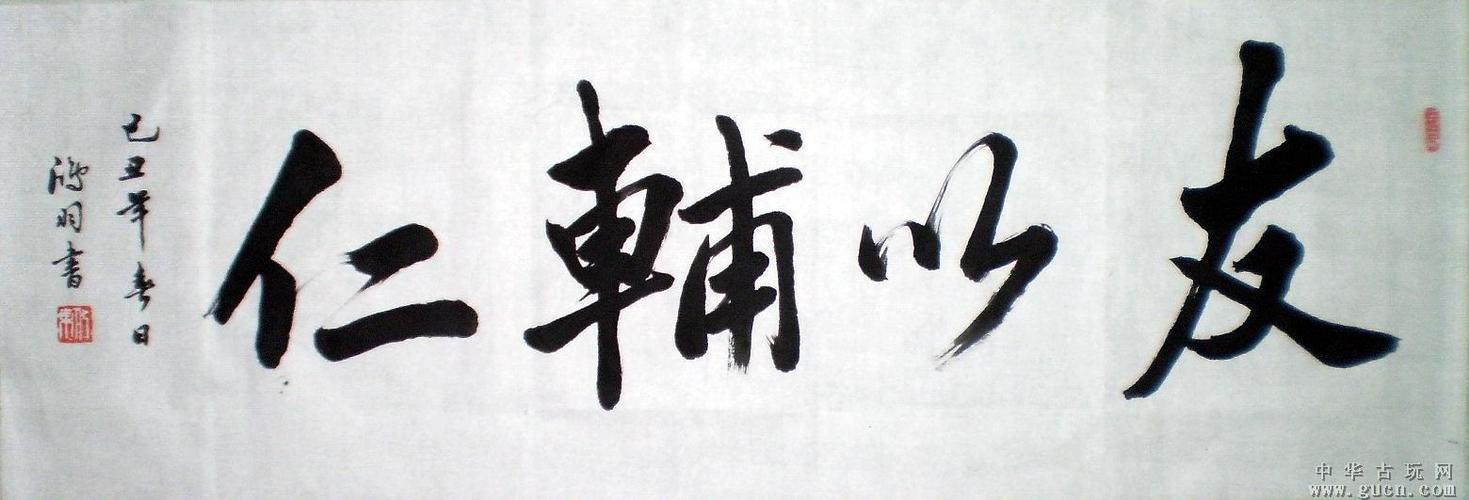 友以輔仁
己丑年春日
鴻羽書
中华古玩网
www.gucn.com